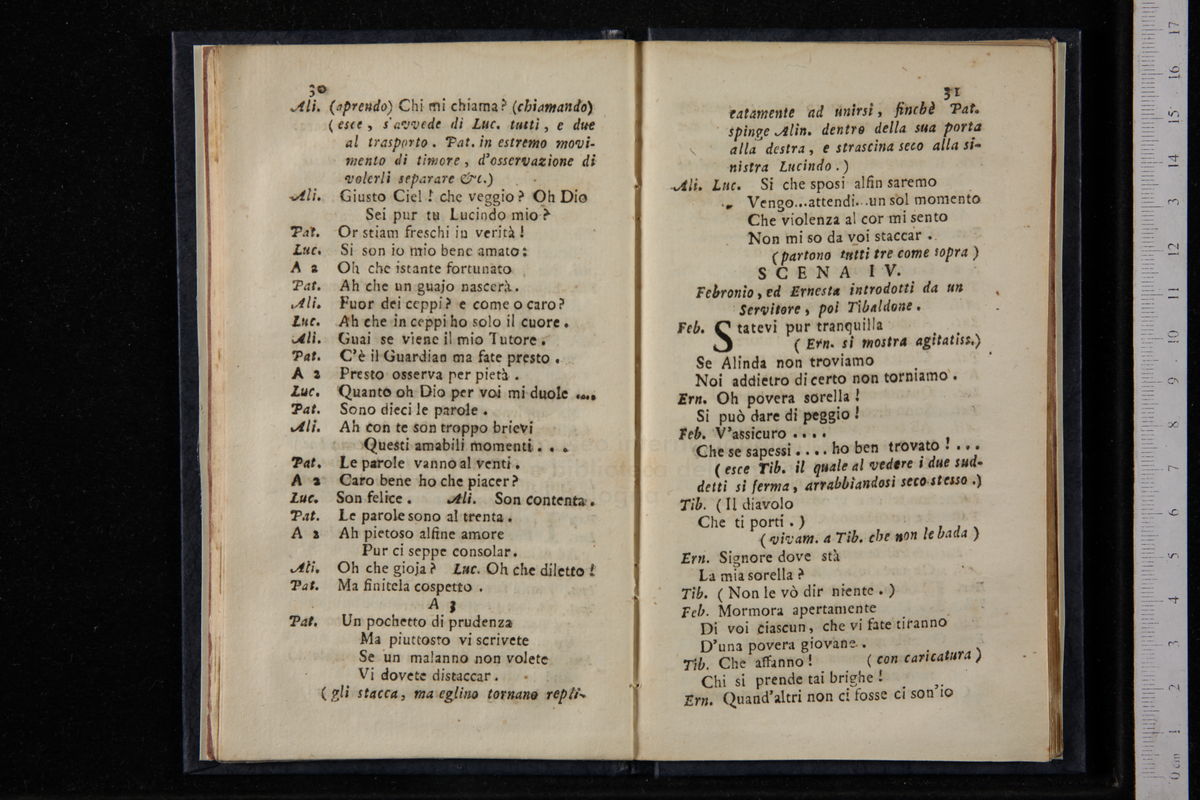 30
Ali. (aprendo) Chi mi chiama? (chiamando)
(esce, s'avvede di Luc. tutti, e due
al trasporto. Pat. in estremo movi-
mento di timore, d'osservazione di
volerli separare &c.)
Ali. Giusto Ciel! che veggio? Oh Dio
Sei pur tu Lucindo mio?
Pat. Or stiam freschi in verità!
Luc. Si son io mio bene amato:
A 2 Oh che istante fortunato
Pat. Ah che un guajo nascerà.
Ali. Fuor dei ceppi? e come o caro?
Luc. Ah che in ceppi ho solo il cuore.
Ali. Guai se viene il mio Tutore.
Pat. C'è il Guardian ma fate presto.
A 2 Presto osserva per pietà.
Luc. Quanto oh Dio per voi mi duole ....
Pat. Sono dieci le parole.
Ali. Ah con te son troppo brievi
Questi amabili momenti...
Pat. Le parole vanno al venti.
A 2 Caro bene ho che piacer?
Luc. Son felice. Ali. Son contenta.
Pat. Le parole sono al trenta.
A 2 Ah pietoso alfine amore
Pur ci seppe consolar.
Ali. Oh che gioja? Luc. Oh che diletto!
Pat. Ma finitela cospetto.
A 3
Pat. Un pochetto di prudenza
Ma piuttosto vi scrivete
Se un malanno non volete
Vi dovete distaccar.
(gli stacca, ma eglino tornano repli-
31
catamente ad unirsi, finchè Pat.
spinge Alin. dentro della sua porta
alla destra, e strascina seco alla si-
nistra Lucindo.)
Ali. Luc. Si che sposi alfin saremo
Vengo...attendi...un sol momento
Che violenza al cor mi sento
Non mi so da voi staccar.
(partono tutti tre come sopra)
SCENA IV.
Febronio, ed Ernesta introdotti da un
Servitore, poi Tibaldone.
Feb. Statevi pur tranquilla
(Ern. si mostra agitatiss.)
Se Alinda non troviamo
Noi addietro di certo non torniamo.
Ern. Oh povera sorella!
Si può dare di peggio!
Feb. V'assicuro ....
Che se sapessi .... ho ben trovato! ...
(esce Tib. il quale al vedere i due sud-
detti si ferma, arrabbiandosi seco stesso.)
Tib. (Il diavolo
Che ti porti.)
(vivam. a Tib. che non le bada)
Ern. Signore dove stà
La mia sorella?
Tib. (Non le vò dir niente.)
Feb. Mormora apertamente
Di voi ciascun, che vi fate tiranno
D'una povera giovane.
Tib. Che affanno! (con caricatura)
Chi si prende tai brighe!
Ern. Quand'altri non ci fosse ci son'io
0 cm 1 2 3 4 5 6 7 8 9 10 11 12 13 14 15 16 17